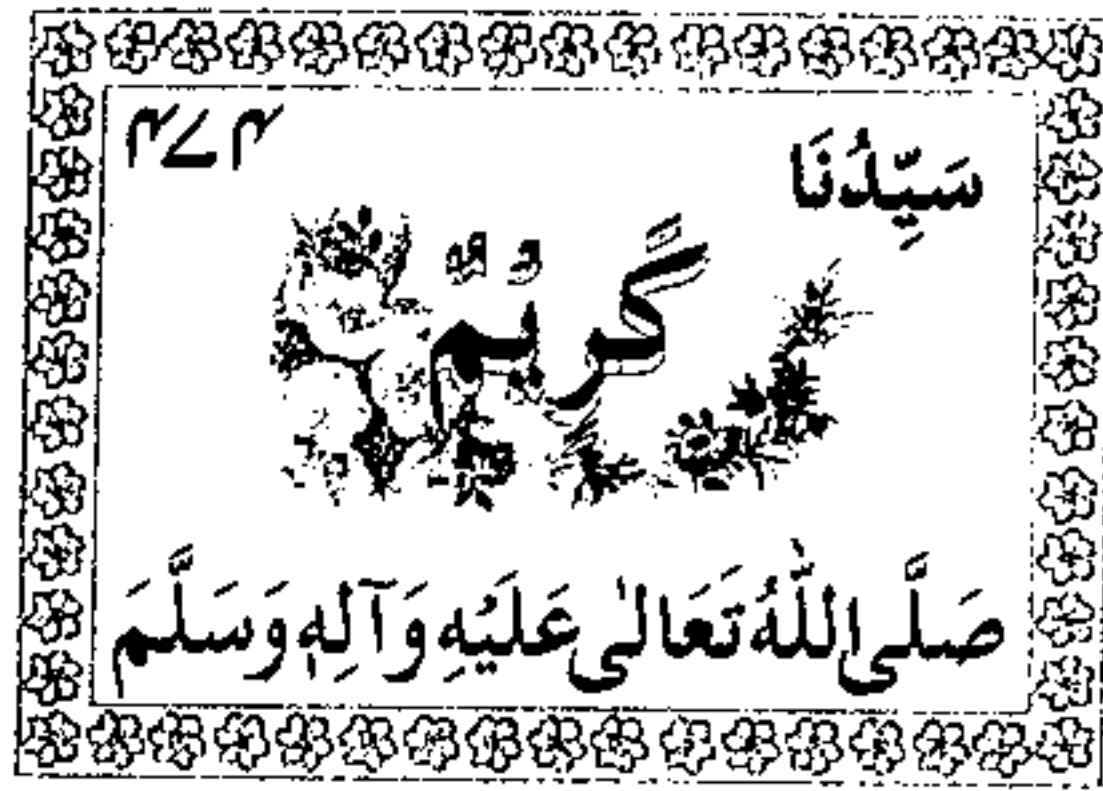 ۴۷۴
سَیِّدُنَا
کَرِیْمٌ
صَلَّی اللّٰهُ تَعَالٰی عَلَیْهِ وَآلِهٖ وَسَلَّمَ